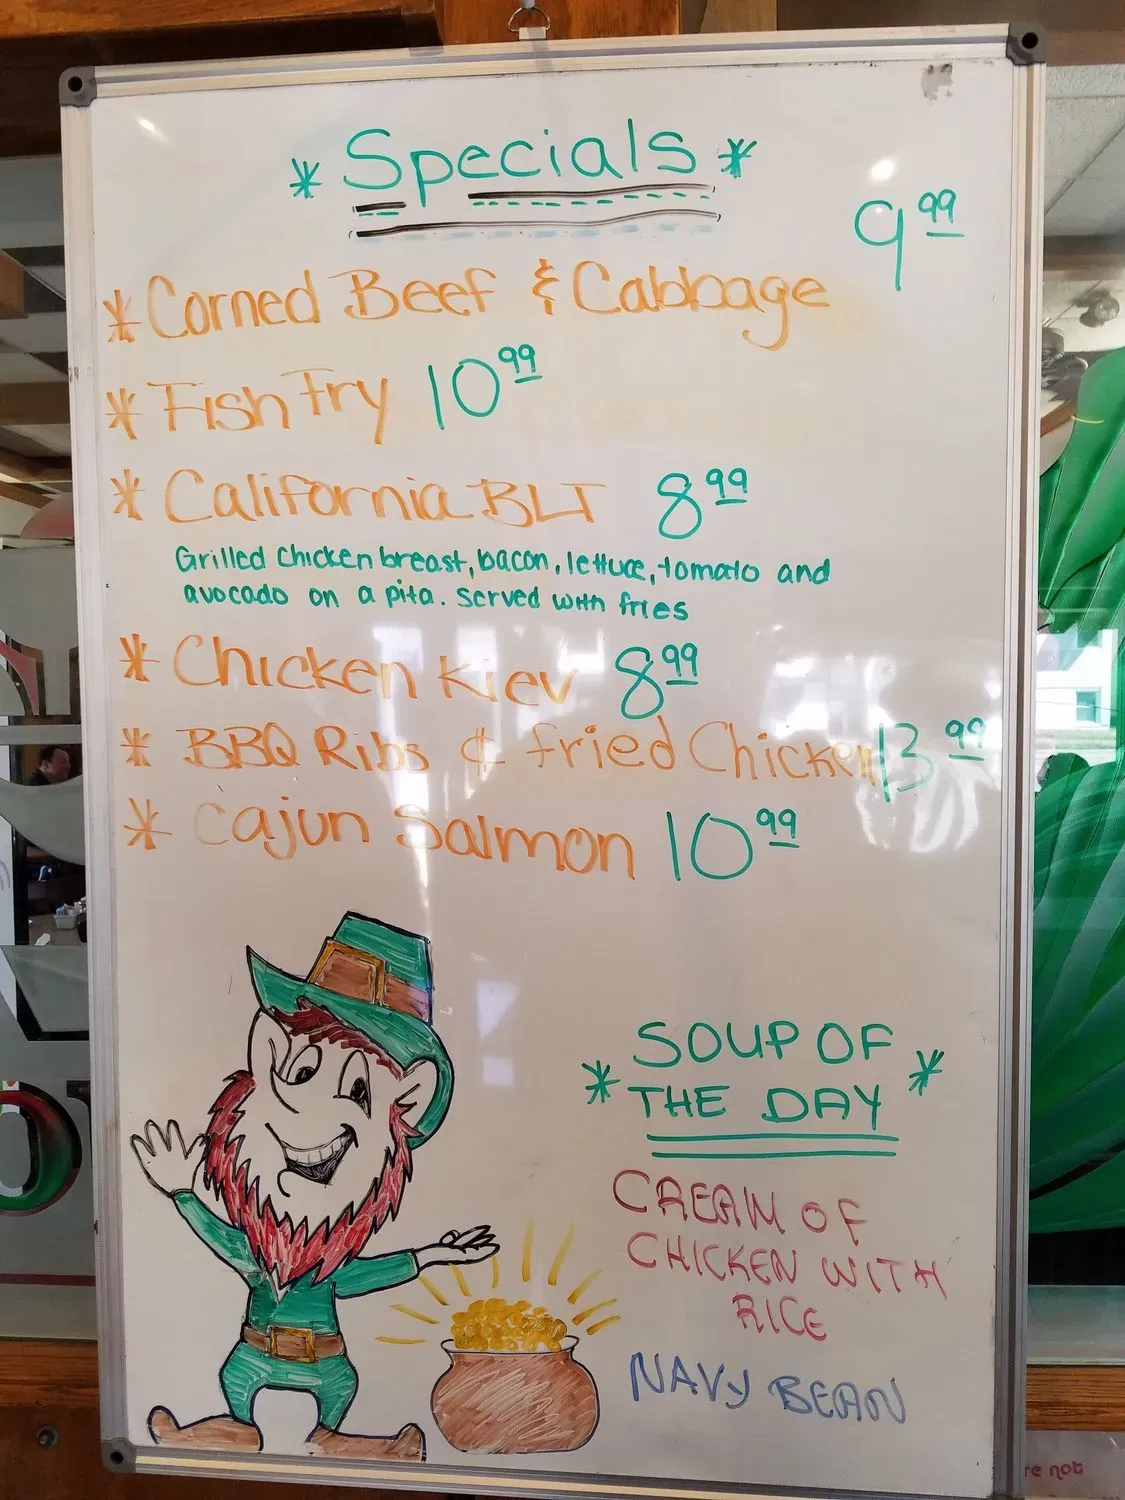 * Specials *
* Corned Beef & Cabbage 9.99
* Fish Fry 10.99
* California BLT 8.99
Grilled chicken breast, bacon, lettuce, tomato and
avocado on a pita. served with fries
* Chicken Kiev 8.99
* BBQ Ribs & fried Chicken 13.99
* Cajun Salmon 10.99
* SOUP OF
THE DAY *
CREAM OF
CHICKEN WITH
RICE
NAVY BEAN
re not